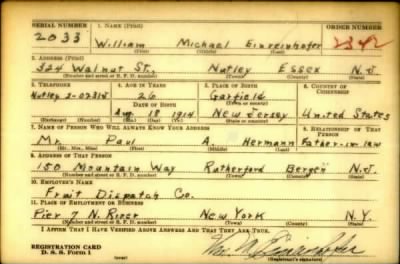 SERIAL NUMBER 1. NAME (Print) ORDER NUMBER
2033 William Michael Einreinhofer 2342
2. ADDRESS (Print)
324 Walnut St., Nutley Essex N.J.
(Number and street or R. F. D. number) (Town) (County) (State)
3. TELEPHONE 4. AGE IN YEARS 5. PLACE OF BIRTH 6. COUNTRY OF CITIZENSHIP
Nutley 2-0231J 26 Garfield
DATE OF BIRTH
Aug. 18 1914 New Jersey United States
(Exchange) (Number) (Mo.) (Day) (Yr.) (State or country)
7. NAME OF PERSON WHO WILL ALWAYS KNOW YOUR ADDRESS 8. RELATIONSHIP OF THAT PERSON
Mr. Paul A. Hermann Father-in law
(Mr., Mrs., Miss) (First) (Middle) (Last)
9. ADDRESS OF THAT PERSON
150 Mountain Way Rutherford Bergen N.J.
(Number and street or R. F. D. number) (Town) (County) (State)
10. EMPLOYER'S NAME
Fruit Dispatch Co.
11. PLACE OF EMPLOYMENT OR BUSINESS
Pier 7 N. River New York N.Y.
(Number and street or R. F. D. number) (Town) (County) (State)
I AFFIRM THAT I HAVE VERIFIED ABOVE ANSWERS AND THAT THEY ARE TRUE.
REGISTRATION CARD
D. S. S. Form 1
Wm. M. Einreinhofer